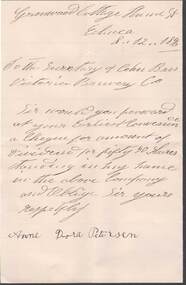 Greenwood Cottage Hume St
Echuca
8. 12. 18
To the Secretary of Cohn Bros
Victoria Brewery Co
Sir would you forward
at your Earliest Convenience
a Cheque for amount of
dividend for fifty 50 shares
standing in my name
in the above Company
and Oblige Sir yours
respectfly
Anne Dora Petersen